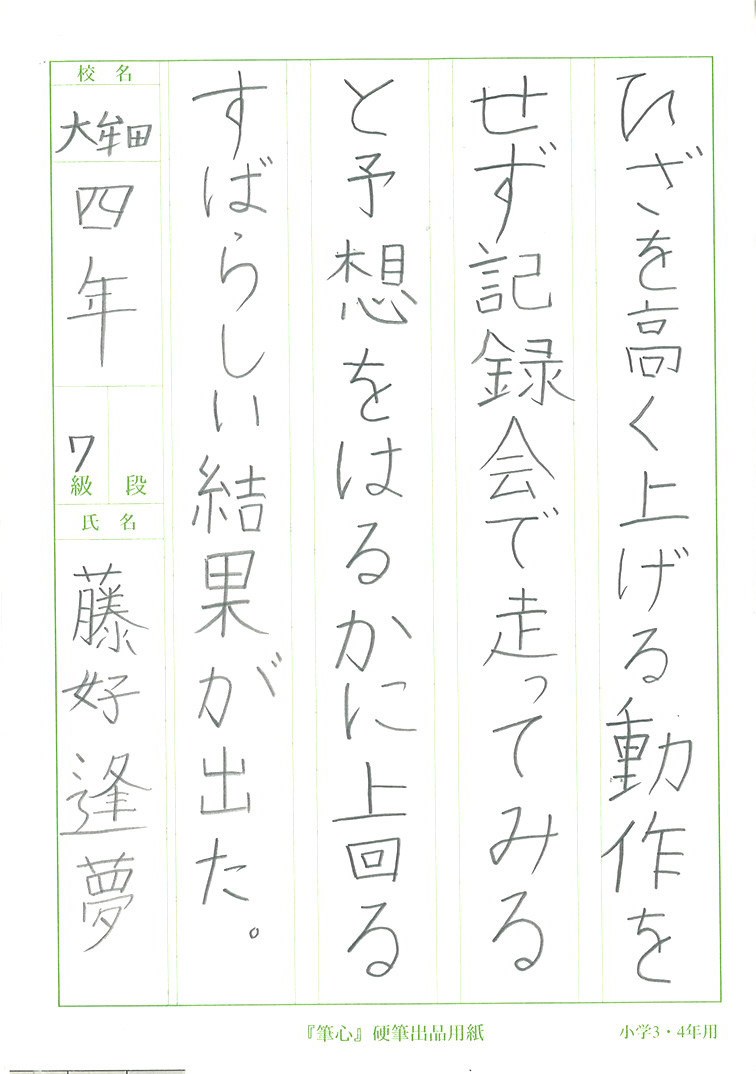 ひざを高く上げる動作を
せず記録会で走ってみる
と予想をはるかに上回る
すばらしい結果が出た。
校名
大牟田
四年
7
級 段
氏名
藤好逢夢
『筆心』硬筆出品用紙
小学3・4年用